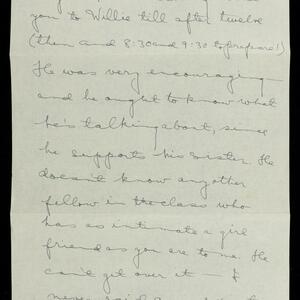 you to Willie till after twelve
(then and 8:30 and 9:30 to prepare!)
He was very encouraging—
and he ought to know what
he's talking about, since
he supports his sister. He
doesn't know another
fellow in the class who
has as intimate a girl
friend as you are to me. He
can't get over it — I
never said